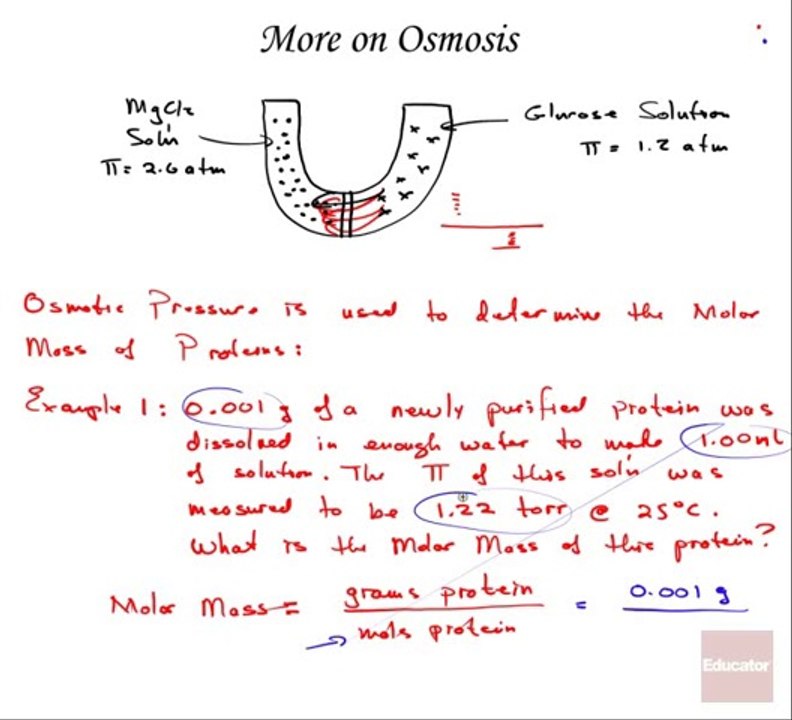 More on Osmosis
MgCl2
Soln
π = 2.6 atm
Glucose Solution
π = 1.2 atm
Osmotic Pressure is used to determine the Molar
Mass of Proteins:
Example 1: 0.001 g of a newly purified protein was
dissolved in enough water to make 1.00 mL
of solution. The π of this soln was
measured to be 1.22 torr @ 25°C.
What is the Molar Mass of this protein?
Molar Mass = grams protein = 0.001 g
mols protein
Educator